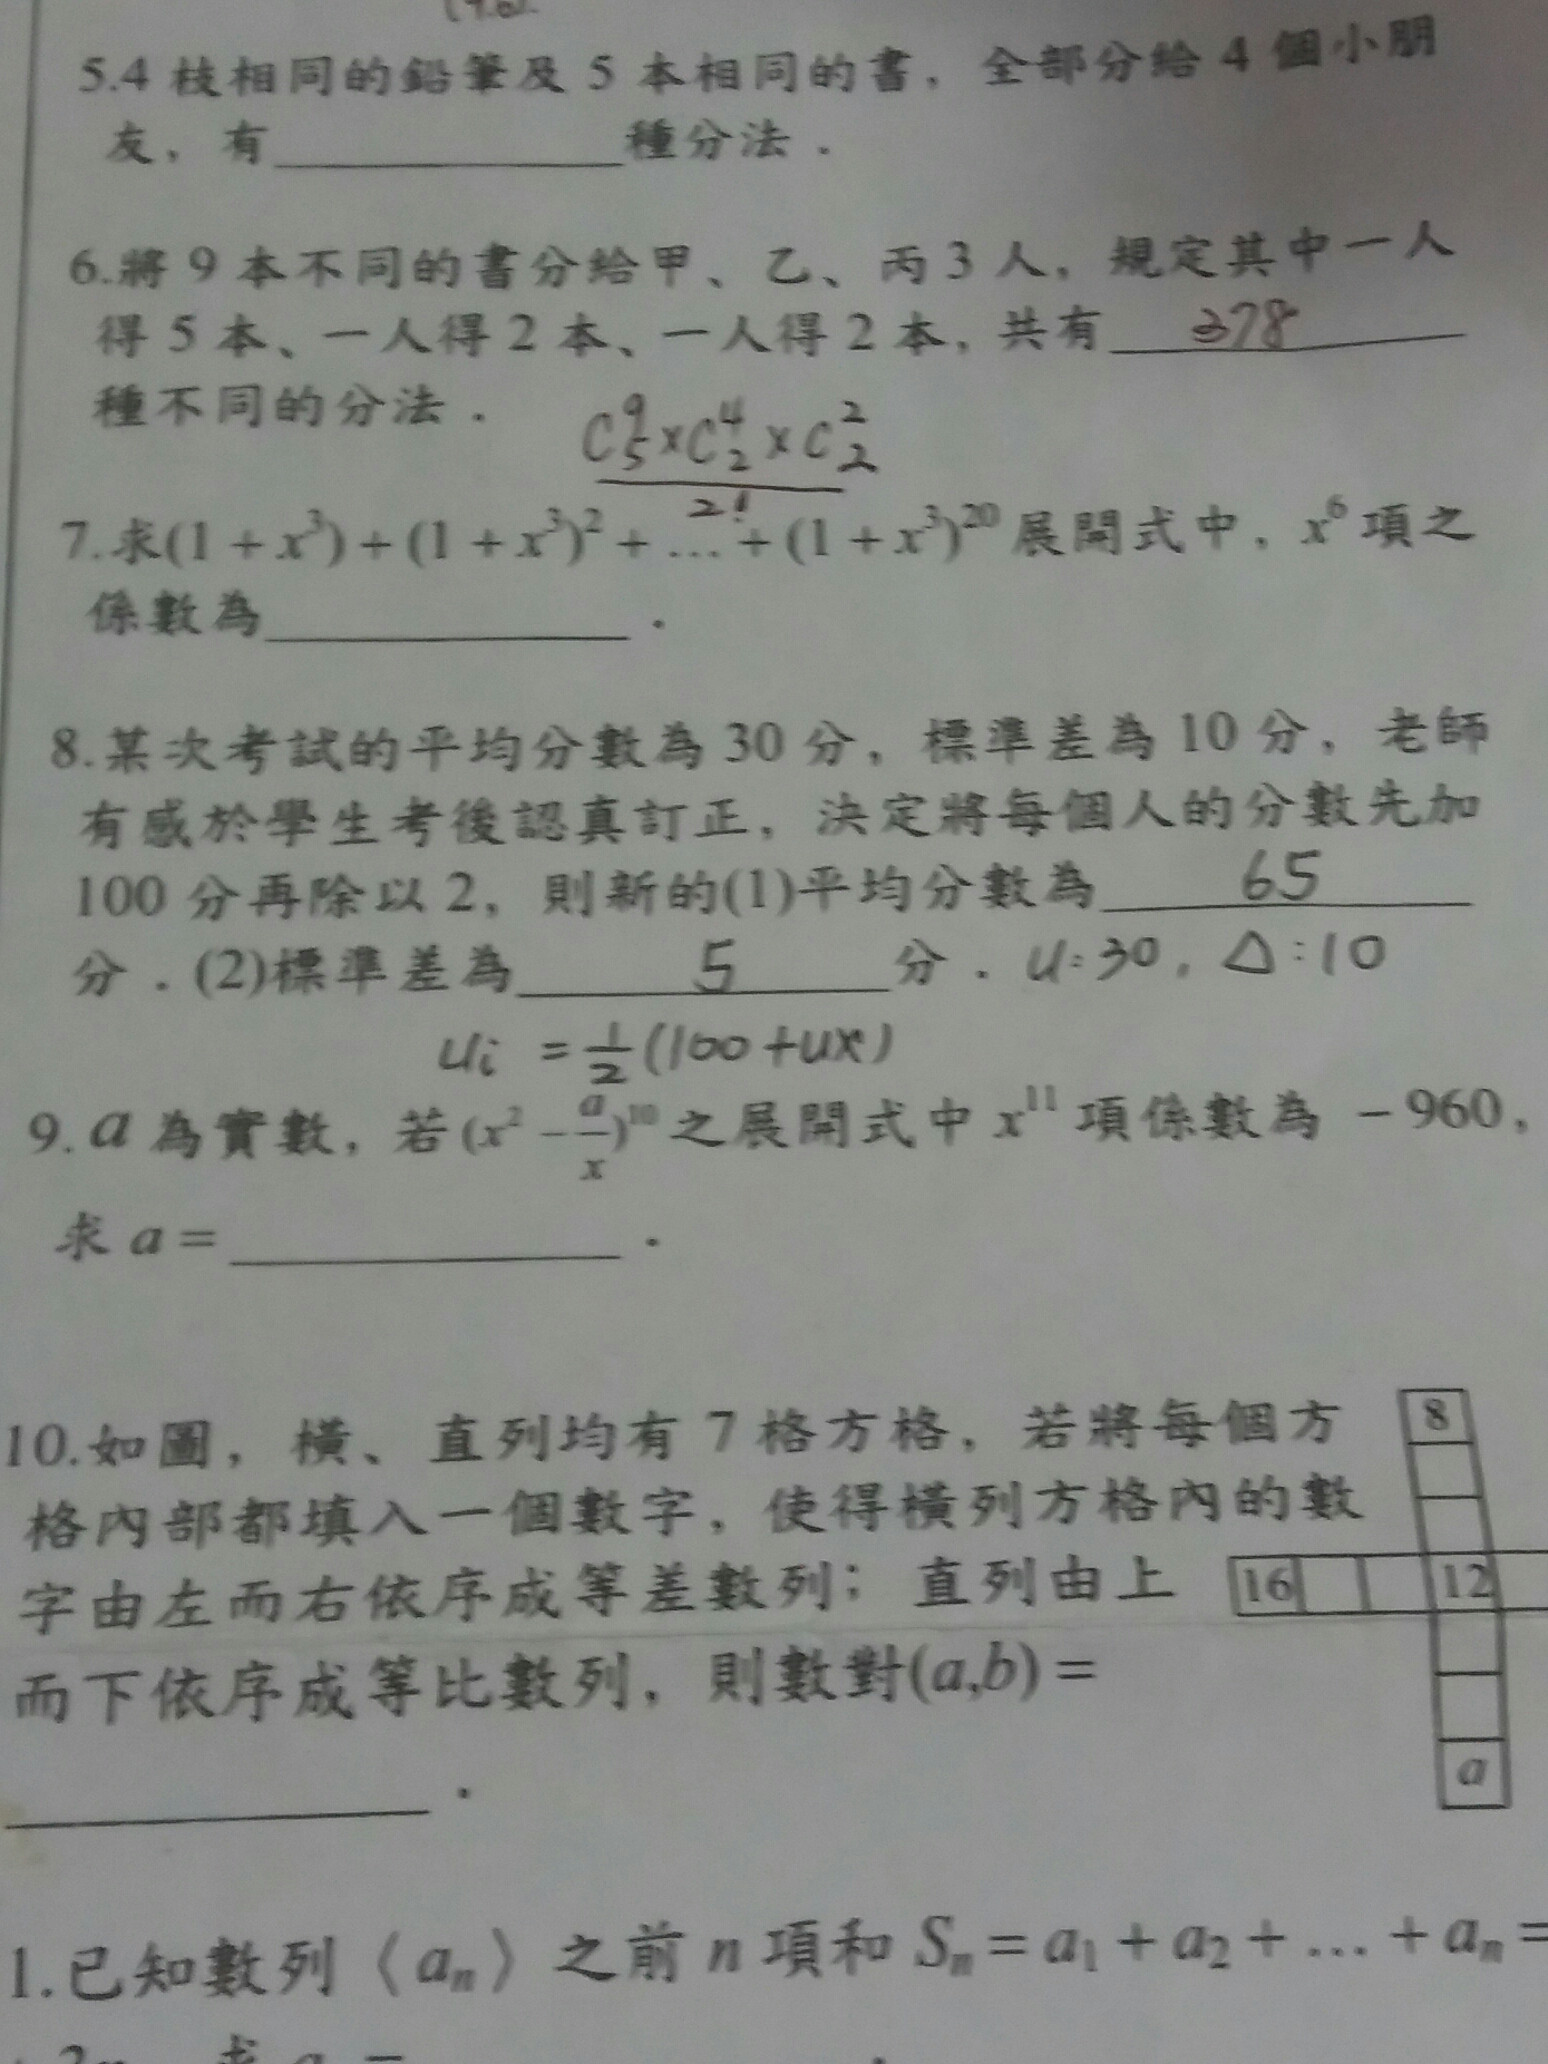 5.4 枝相同的鉛筆及 5 本相同的書，全部分給 4 個小朋
友，有____________種分法．
6.將 9 本不同的書分給甲、乙、丙 3 人，規定其中一人
得 5 本、一人得 2 本、一人得 2 本，共有 378
種不同的分法．
C⁹₅×C⁴₂×C²₂
2!
7.求(1 + x³) + (1 + x³)² + … + (1 + x³)²⁰ 展開式中，x⁶ 項之
係數為____________．
8.某次考試的平均分數為 30 分，標準差為 10 分，老師
有感於學生考後認真訂正，決定將每個人的分數先加
100 分再除以 2，則新的(1)平均分數為 65
分．(2)標準差為 5 分． u:30, △:10
ui = 1/2 (100+ux)
9. a 為實數，若 (x² − a/x)¹⁰ 之展開式中 x¹¹ 項係數為 −960，
求 a = ____________．
10.如圖，橫、直列均有 7 格方格，若將每個方 8
格內部都填入一個數字，使得橫列方格內的數
字由左而右依序成等差數列；直列由上 16 12
而下依序成等比數列，則數對(a,b) =
____________． a
1.已知數列〈aₙ〉之前 n 項和 Sₙ = a₁ + a₂ + … + aₙ =